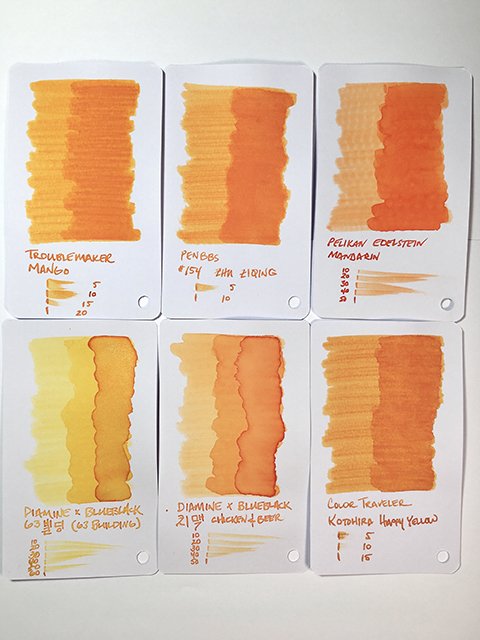 TROUBLEMAKER
MANGO
5
10
15
20
PENBBS
#154 ZHU ZIQING
5
10
PELIKAN EDELSTEIN
MANDARIN
10
20
30
40
DIAMINE × BLUEBLACK
63빌딩 (63 BUILDING)
DIAMINE × BLUEBLACK
치맥 CHICKEN & BEER
10
20
30
40
50
COLOR TRAVELER
KOTOHIRA HAPPY YELLOW
5
10
15